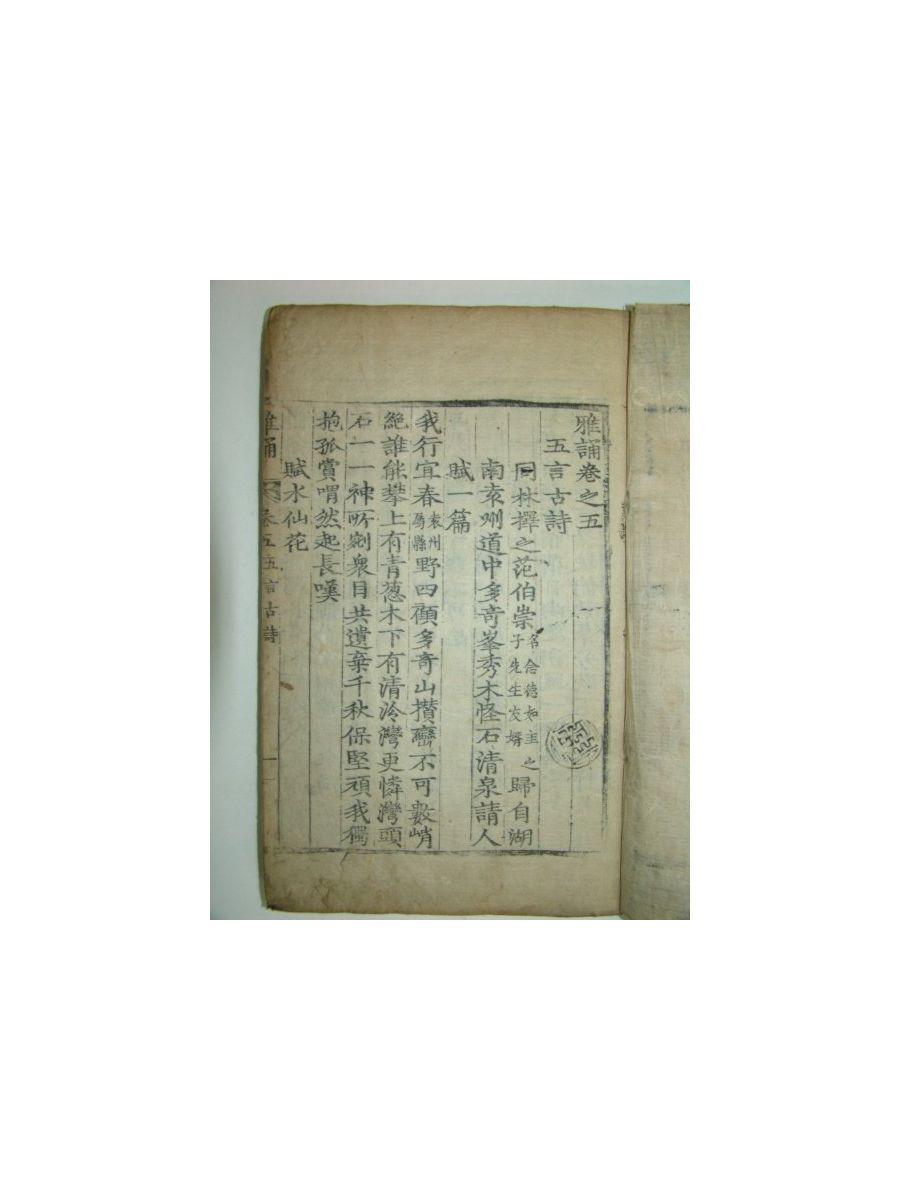 雅誦卷之五
五言古詩
同林擇之范伯崇名念德如圭之子先生友婿歸自湖
南袁州道中多奇峯秀木怪石清泉請人
賦一篇
我行宜春袁州属縣野四顧多奇山攅巒不可數峭
絶誰能攀上有青葱木下有清泠灣更憐灣頭
石一一神所剜衆目共遺棄千秋保堅頑我獨
抱孤賞喟然起長嘆
賦水仙花
雅誦 卷五 五言古詩 一